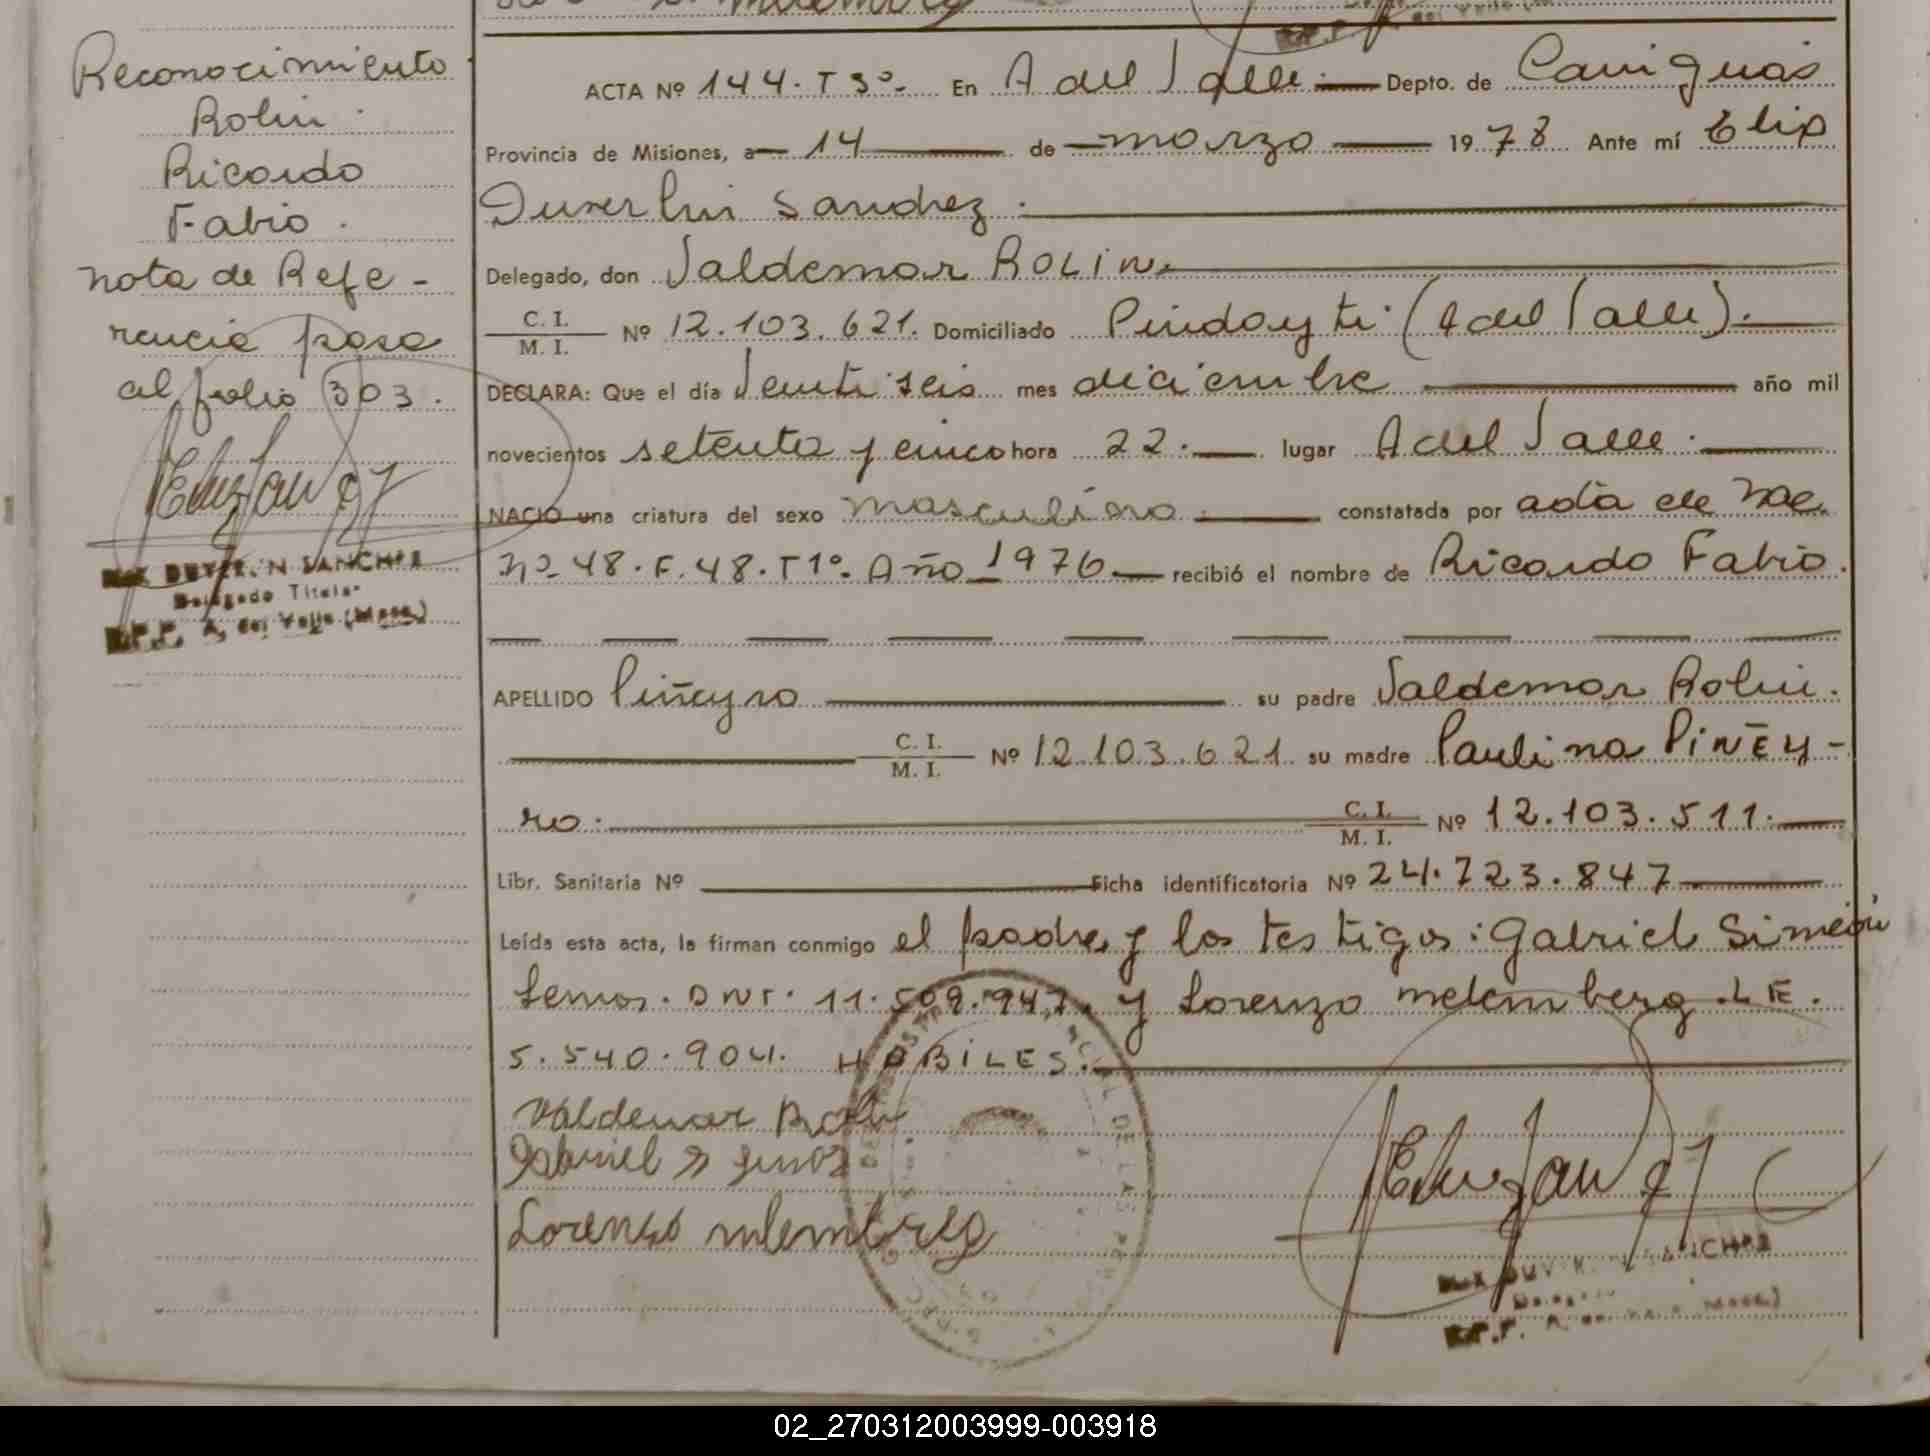 Reconocimiento
Rolin
Ricardo
Fabio.
nota de Refe-
rencia pasa
al folio 303.
Delegado Titular
A. del Valle (Mnes.)
ACTA Nº 144. T 3º- En A del Valle. Depto. de Cainguás
Provincia de Misiones, a 14 de marzo 1978 Ante mí
Sandez.
Delegado, don Valdemar ROLIN.
C. I.
M. I. Nº 12.103.621. Domiciliado Pindayti (A del Valle).
DECLARA: Que el día Veintiseis mes diciembre año mil
novecientos setenta y cinco hora 22. lugar A del Valle.
NACIO una criatura del sexo masculino. constatada por acta de Nac.
Nº 48. F. 48. T 1º. Año 1976 recibió el nombre de Ricardo Fabio.
APELLIDO Piñeyro su padre Valdemar Rolin.
C. I.
M. I. Nº 12.103.621 su madre Paulina PIÑEY-
ro. C. I.
M. I. Nº 12.103.511.
Libr. Sanitaria Nº Ficha identificatoria Nº 24.723.847
Leída esta acta, la firman conmigo el padre y los testigos: Gabriel Simeón
Lemos. DNI. 11.509.947. y Lorenzo Melemberg. LE.
5.540.904. HABILES.
Valdemar Rolin
Gabriel S Lemos
Lorenzo
02_270312003999-003918